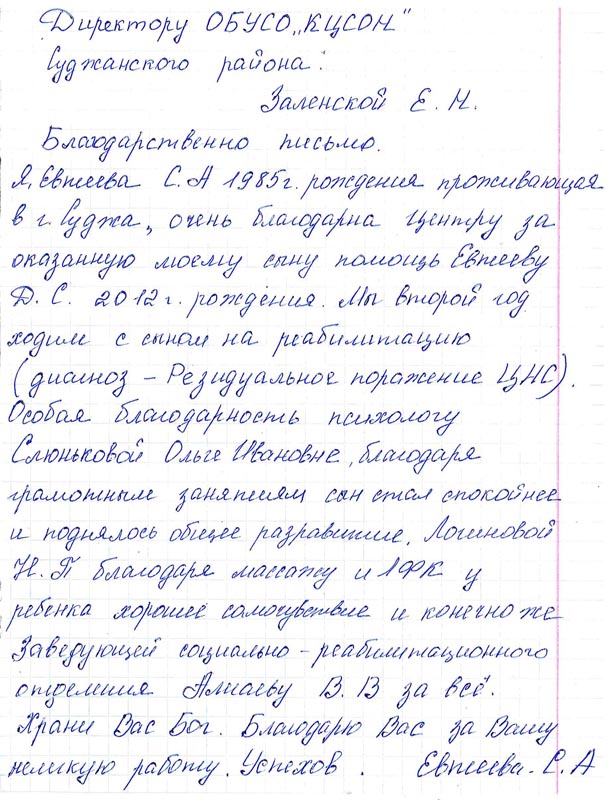 Директору ОБУСО „КЦСОН"
Суджанского района.
Заленской Е. Н.
Благодарственно письмо.
Я, Евтеева С.А 1985г. рождения проживающая
в г. Суджа, очень благодарна Центру за
оказанную моему сыну помощь Евтееву
Д. С. 2012 г. рождения. Мы второй год
ходим с сыном на реабилитацию
(диагноз – Резидуальное поражение ЦНС).
Особая благодарность психологу
Слюньковой Ольге Ивановне, благодаря
грамотным занятиям сын стал спокойнее
и поднялось общее разравитие. Логиновой
Н. П благодаря массажу и ЛФК у
ребенка хорошее самочувствие и конечно же
Заведующей социально – реабилитационного
отделения В. В за всё.
Храни Вас Бог. Благодарю Вас за Вашу
нелкую работу. Успехов. Евтеева. С. А